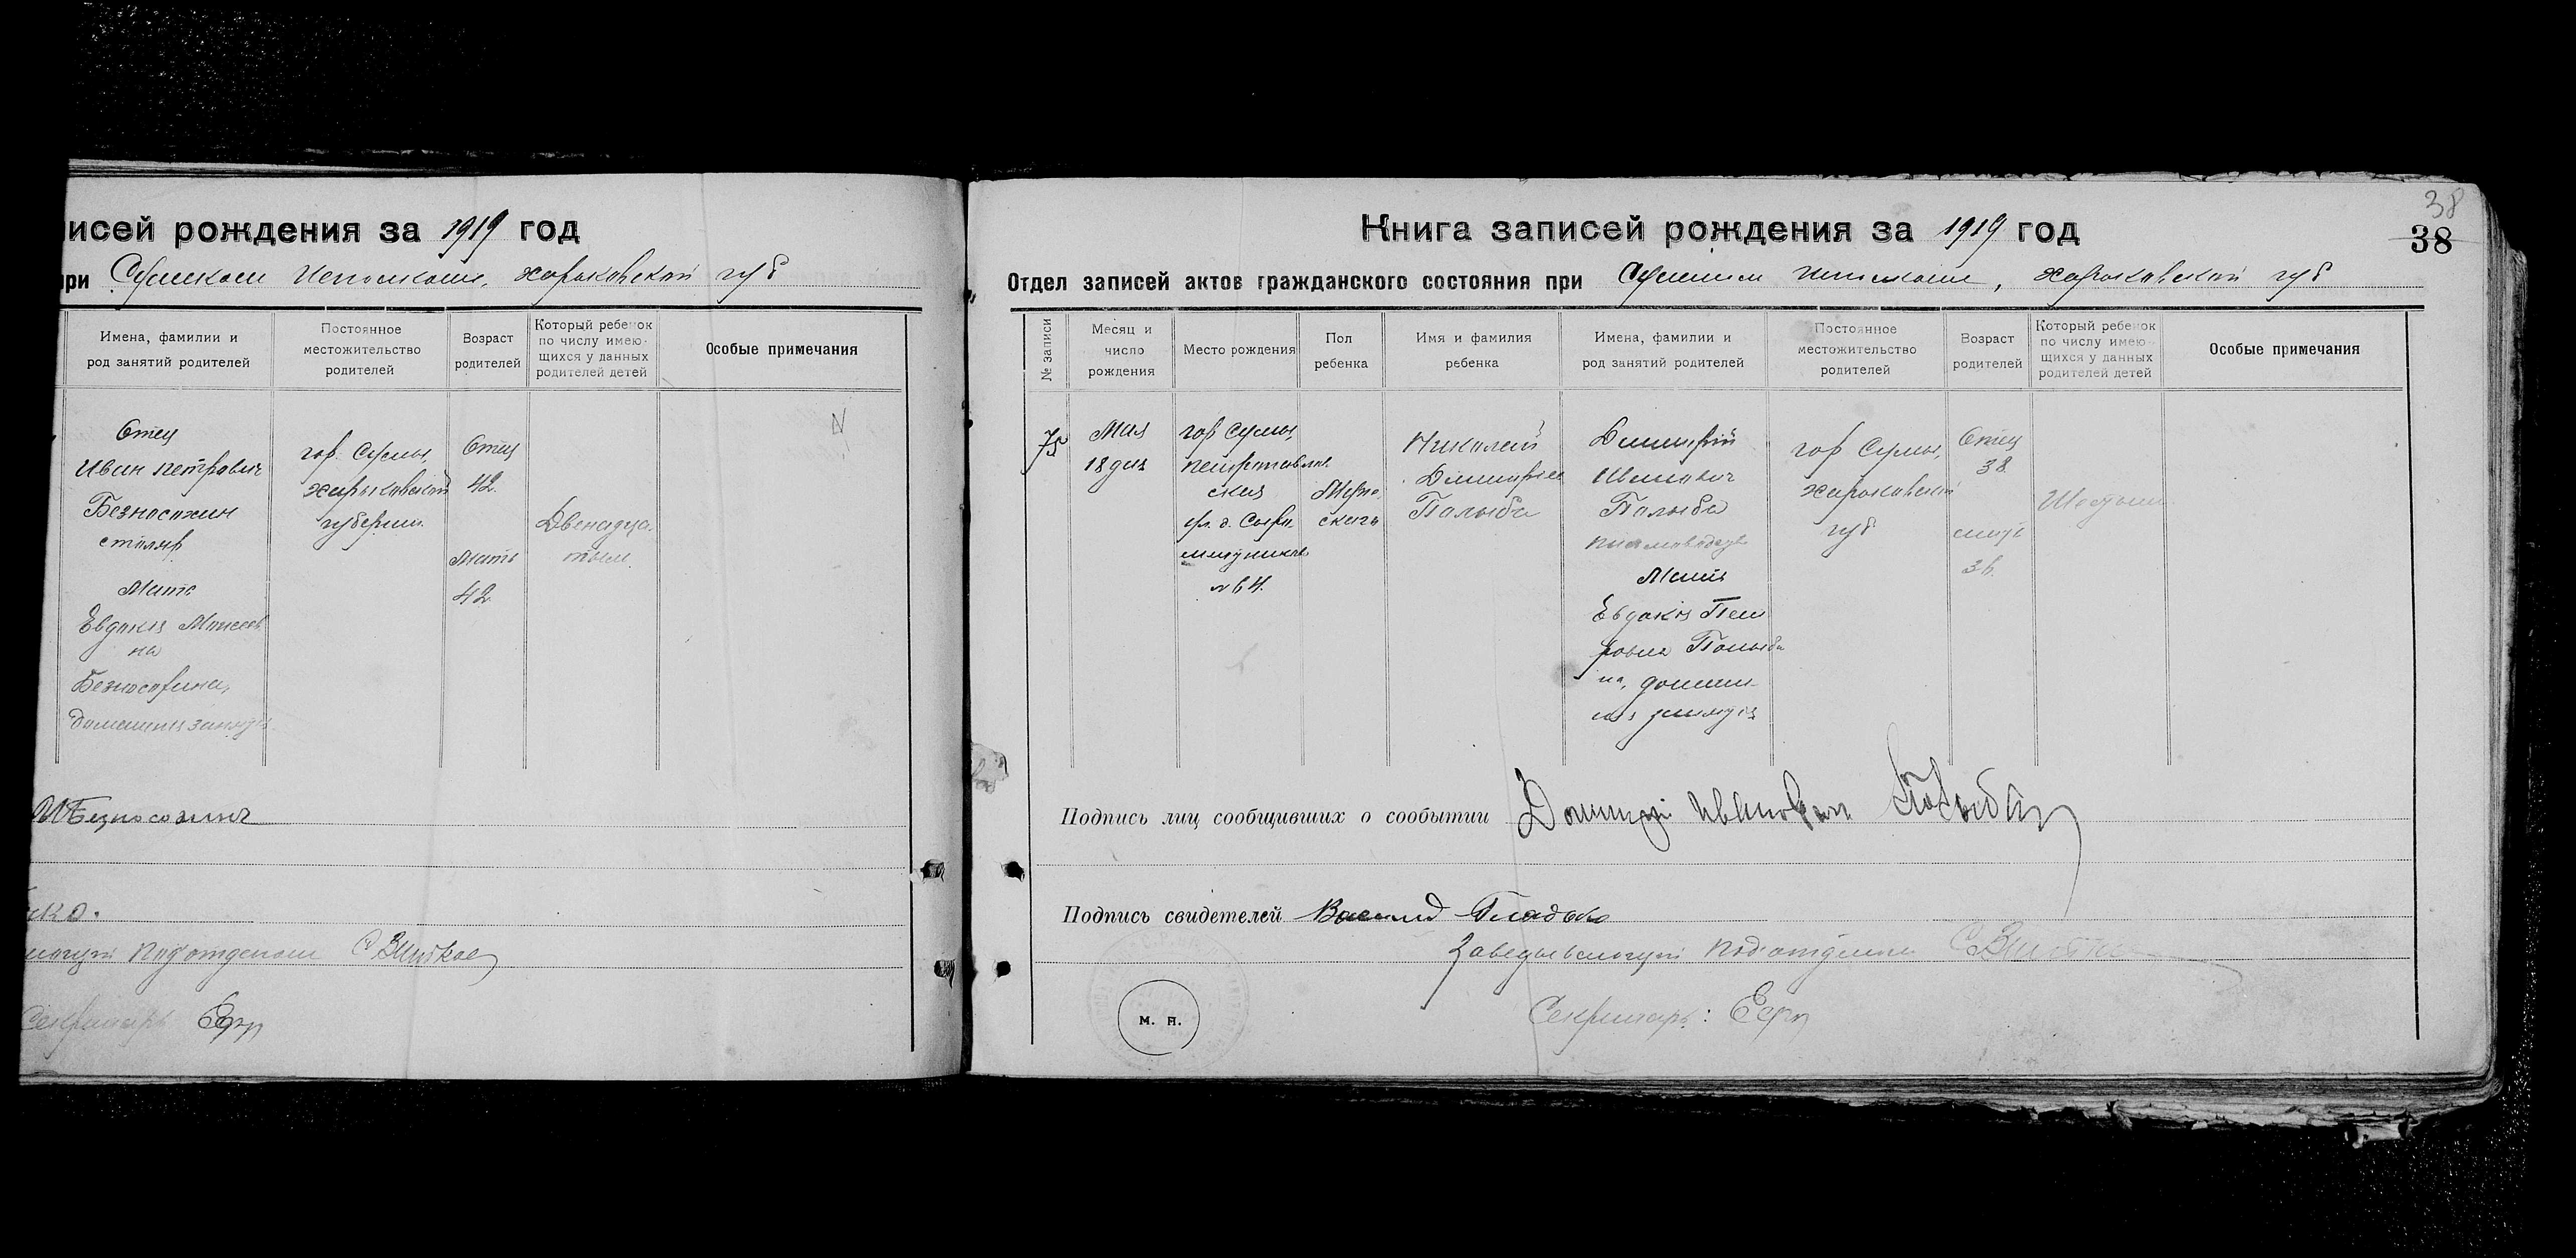 исей рождения за 1919 год
при Сумском Исполкоме, Харьковской губ
Имена, фамилии и
род занятий родителей
Постоянное
местожительство
родителей
Возраст
родителей
Который ребенок
по числу имею-
щихся у данных
родителей детей
Особые примечания
Отец
Иван Петрович
столяр
Мать
Евдокия Моисеев
на
домашния занятія
гор. Сумы,
Харьковской
губернии
Отец
42.
Мать
42
Двенадца
тым.
Секретарь
38
38
Книга записей рождения за 1919 год
Отдел записей актов гражданского состояния при Сумском Исполкоме, Харьковской губ
№ записи
Месяц и
число
рождения
Место рождения
Пол
ребенка
Имя и фамилия
ребенка
Имена, фамилии и
род занятий родителей
Постоянное
местожительство
родителей
Возраст
родителей
Который ребенок
по числу имею-
щихся у данных
родителей детей
Особые примечания
75
Мая
18 дня
гор Сумы,
ская
№ 64.
Муж
ского
Николай
Палыба
Димитрій
Иванович
Палыба
Мать
Евдокія Пет
ровна Палыби
на, домаш-
нія занятія
гор Сумы,
Харьковской
губ
Отец
38.
мать
36.
Шестым
Подпись лиц сообщивших о сообытии Иванович Палыба
Подпись свидетелей Василий Гладко
Заведывающий Подотделом
Секретарь:
м. п.